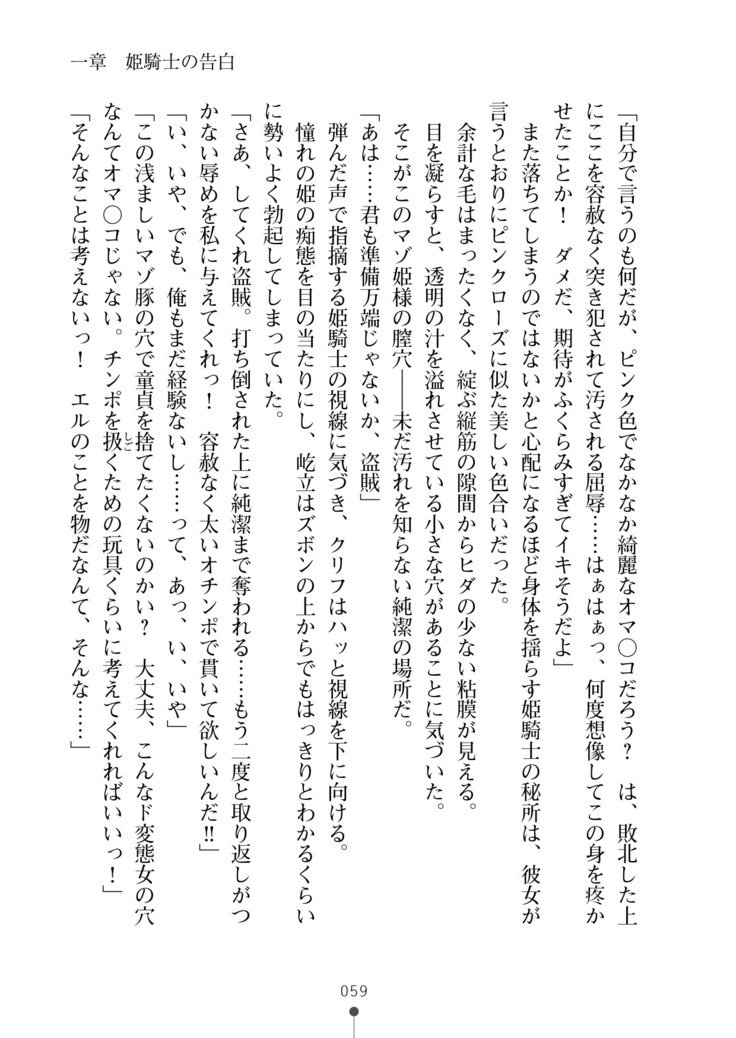 一章　姫騎士の告白
「自分で言うのも何だが、ピンク色でなかなか綺麗なオマ〇コだろう？　は、敗北した上
にここを容赦なく突き犯されて汚される屈辱……はぁはぁっ、何度想像してこの身を疼か
せたことか！　ダメだ、期待がふくらみすぎてイキそうだよ」
また落ちてしまうのではないかと心配になるほど身体を揺らす姫騎士の秘所は、彼女が
言うとおりにピンクローズに似た美しい色合いだった。
余計な毛はまったくなく、綻ぶ縦筋の隙間からヒダの少ない粘膜が見える。
目を凝らすと、透明の汁を溢れさせている小さな穴があることに気づいた。
そこがこのマゾ姫様の膣穴――未だ汚れを知らない純潔の場所だ。
「あは……君も準備万端じゃないか、盗賊」
弾んだ声で指摘する姫騎士の視線に気づき、クリフはハッと視線を下に向ける。
憧れの姫の痴態を目の当たりにし、屹立はズボンの上からでもはっきりとわかるくらい
に勢いよく勃起してしまっていた。
「さあ、してくれ盗賊。打ち倒された上に純潔まで奪われる……もう二度と取り返しがつ
かない辱めを私に与えてくれっ！　容赦なく太いオチンポで貫いて欲しいんだ!!」
「い、いや、でも、俺もまだ経験ないし……って、あっ、い、いや」
「この浅ましいマゾ豚の穴で童貞を捨てたくないのかい？　大丈夫、こんなド変態女の穴
なんてオマ〇コじゃない。チンポを扱くための玩具くらいに考えてくれればいいっ！」
しご
「そんなことは考えないっ！　エルのことを物だなんて、そんな……」
059